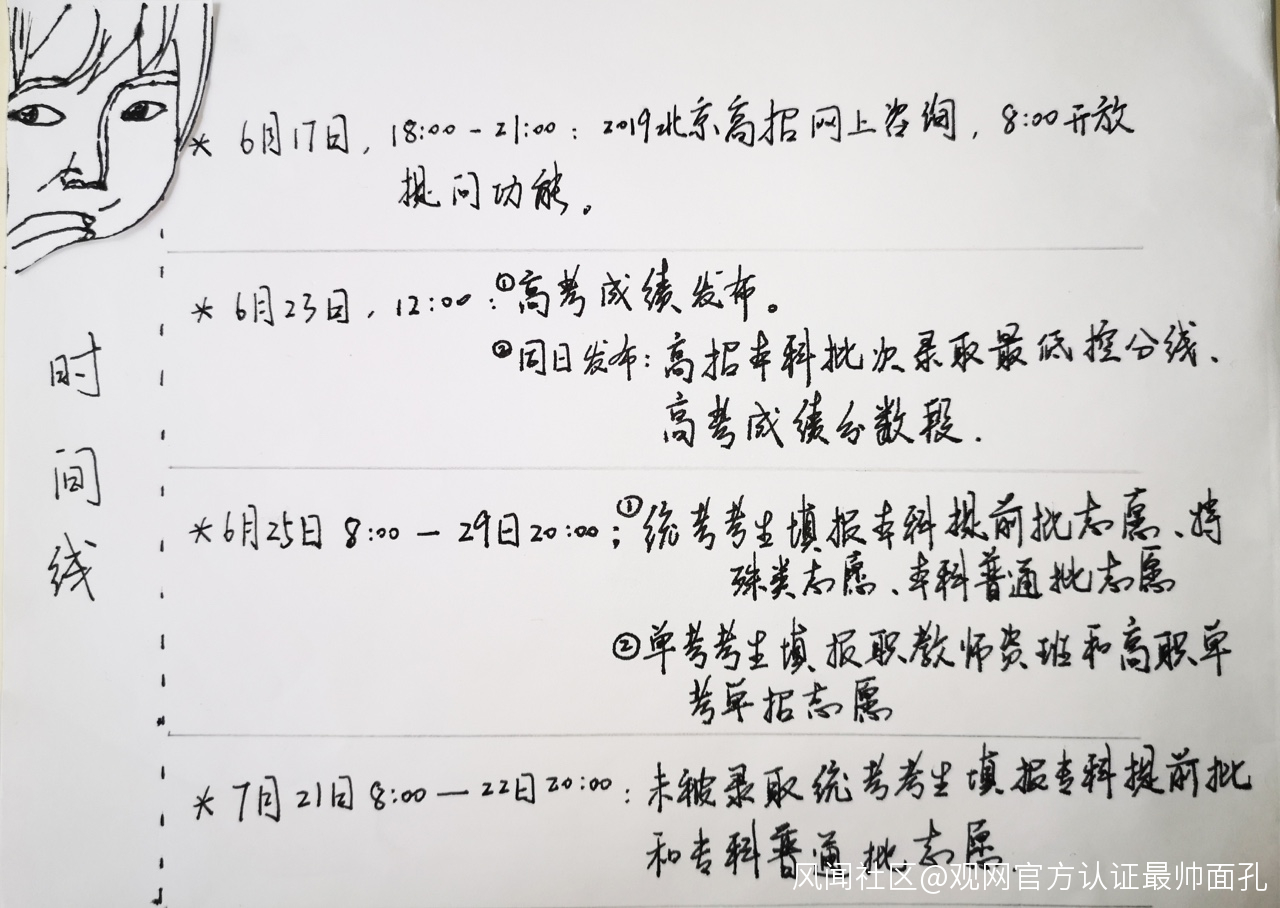 * 6月17日，18:00-21:00：2019北京高招网上咨询，8:00开放
提问功能。
* 6月23日，12:00：①高考成绩发布。
②同日发布：高招本科批次录取最低控分线、
高考成绩分数段.
时间线
*6月25日 8:00 — 29日20:00；①统考考生填报本科提前批志愿、特
殊类志愿、本科普通批志愿
②单考考生填报职教师资班和高职单
考单招志愿
* 7月21日8:00 — 22日20:00：未被录取统考考生填报专科提前批
和专科普通批志愿.
风闻社区@观网官方认证最帅面孔